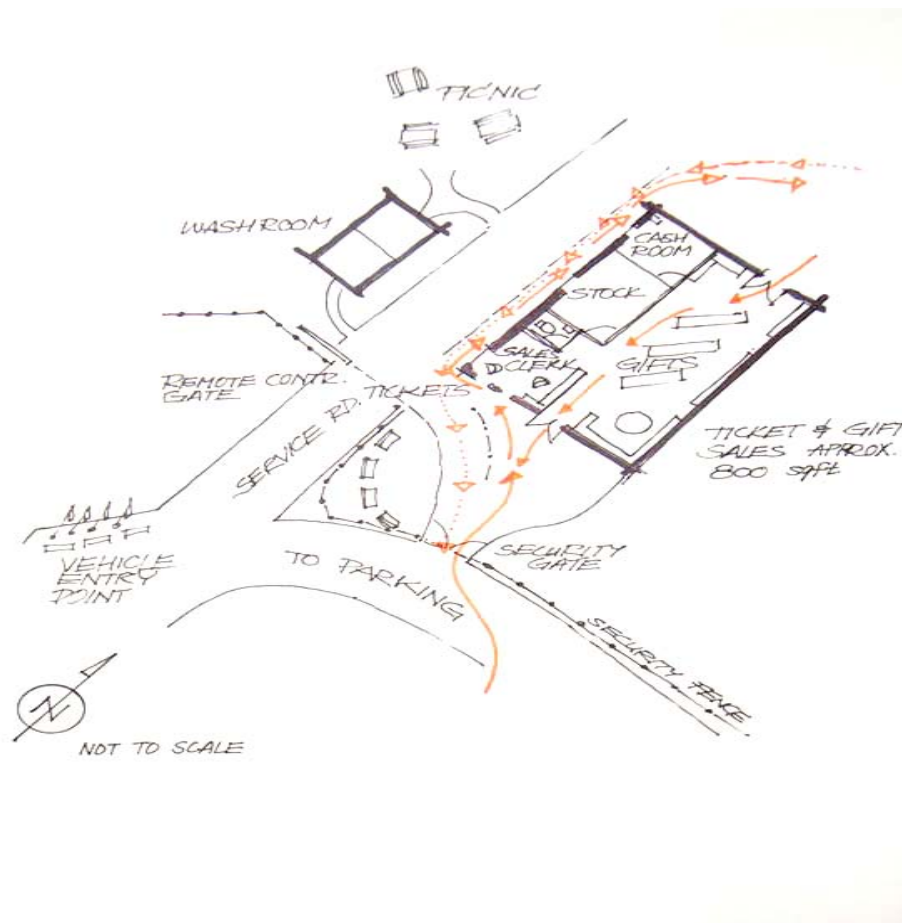 PICNIC
WASHROOM
CASH
ROOM
STOCK
SALES
CLERK
GIFTS
REMOTE CONTR.
GATE
TICKETS
SERVICE RD.
TICKET & GIFT
SALES APPROX.
800 sqft
VEHICLE
ENTRY
POINT
TO PARKING
SECURITY
GATE
SECURITY FENCE
N
NOT TO SCALE